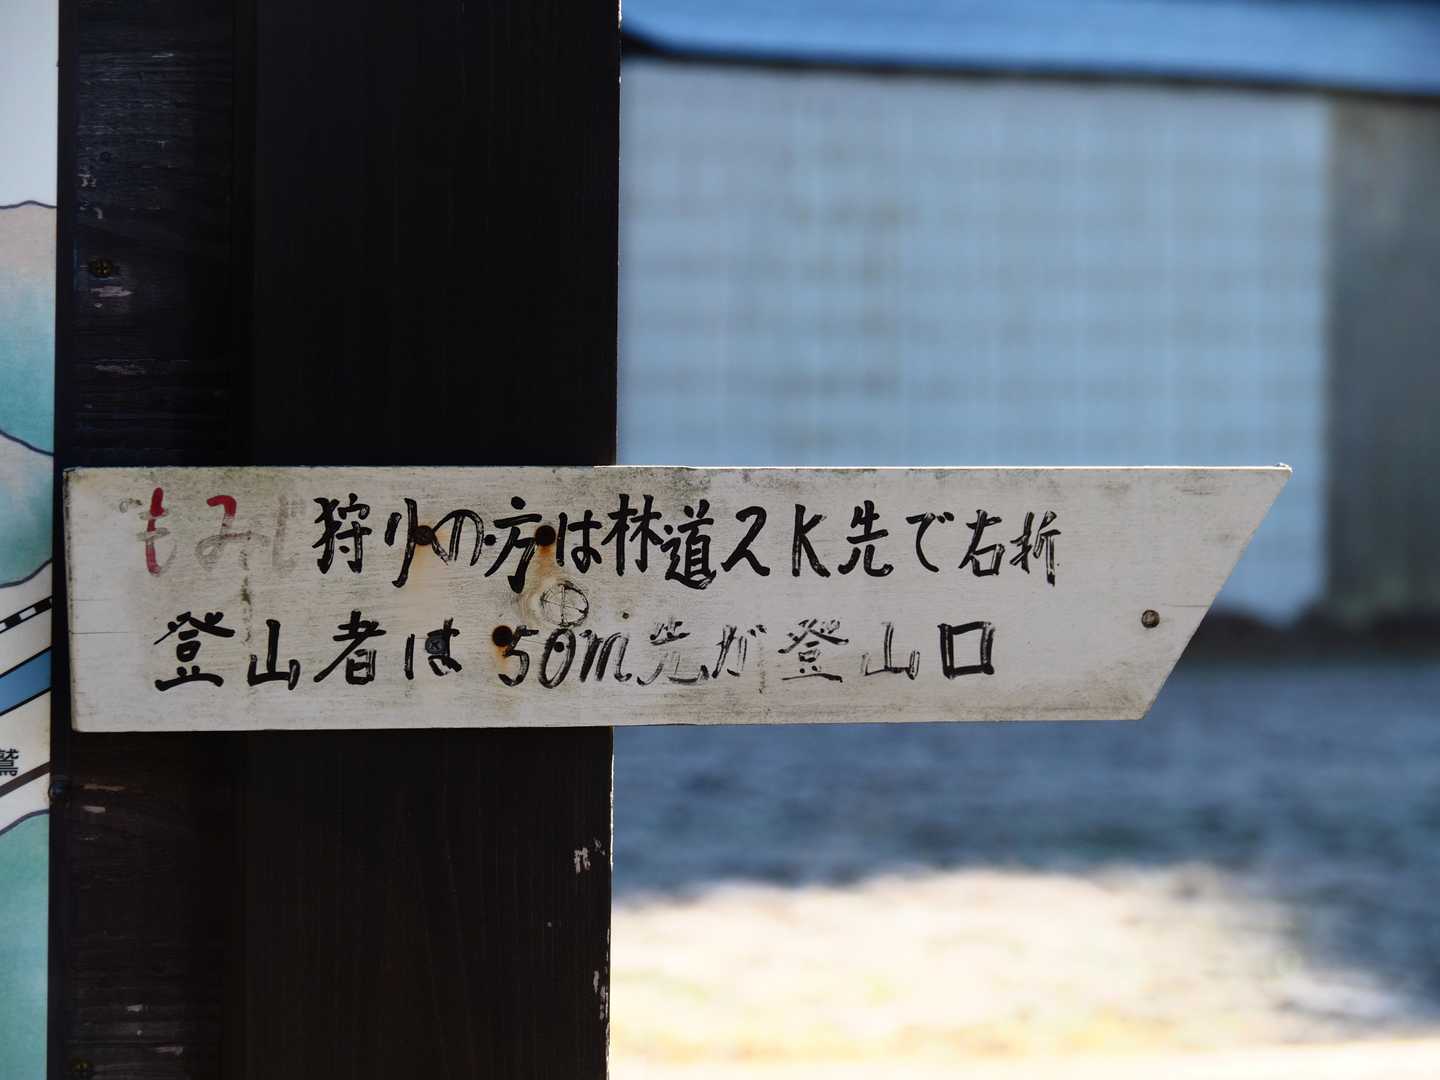 もみじ狩りの方は林道2K先で右折
登山者は50m先が登山口
鷲